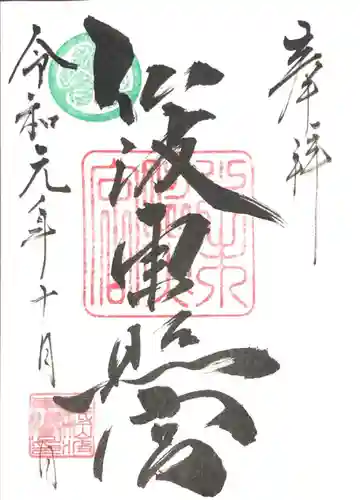 奉拝
仙波東照宮
令和元年十月 日